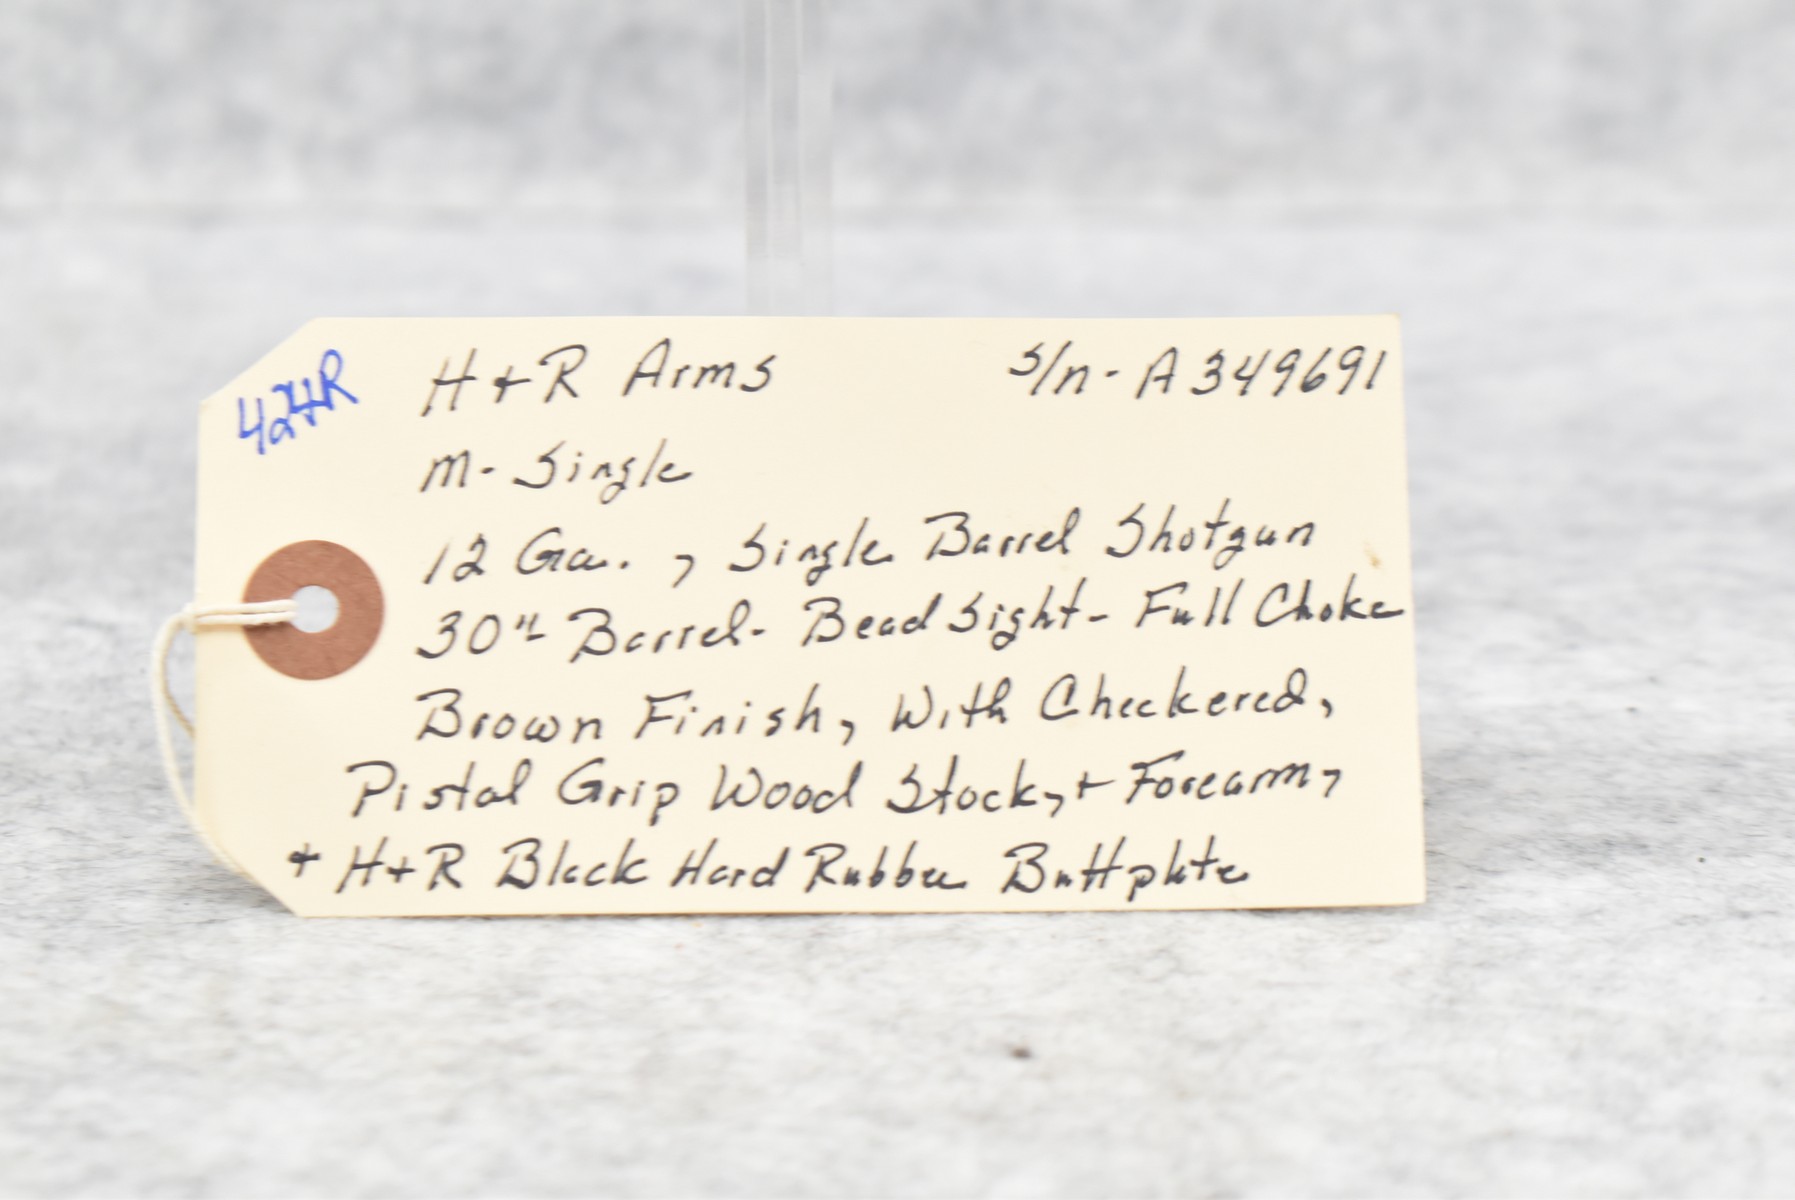 424R
H+R Arms s/n- A349691
M- Single
12 Ga. , Single Barrel Shotgun
30" Barrel- Bead Sight- Full Choke
Brown Finish, With Checkered,
Pistol Grip Wood Stock, + Forearm,
+ H+R Black Hard Rubber Buttplate